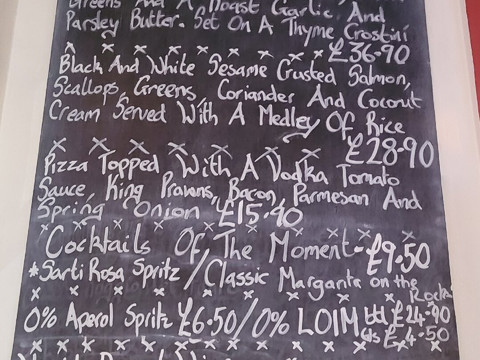 Greens And A Roast Garlic And
Parsley Butter. Set On A Thyme Crostini
x x x x x x x x £36.90
Black And White Sesame Crusted Salmon,
Scallops, Greens, Coriander And Coconut
Cream Served With A Medley Of Rice
x x x x x x x £28.90
Pizza Topped With A Vodka Tomato
Sauce, King Prawns, Bacon, Parmesan And
Spring Onion £15.90
Cocktails Of The Moment - £9.50
*Sarti Rosa Spritz / Classic Margarita on the
Rocks
0% Aperol Spritz £6.50/0% LOIM btl £24.90
gls £4.50